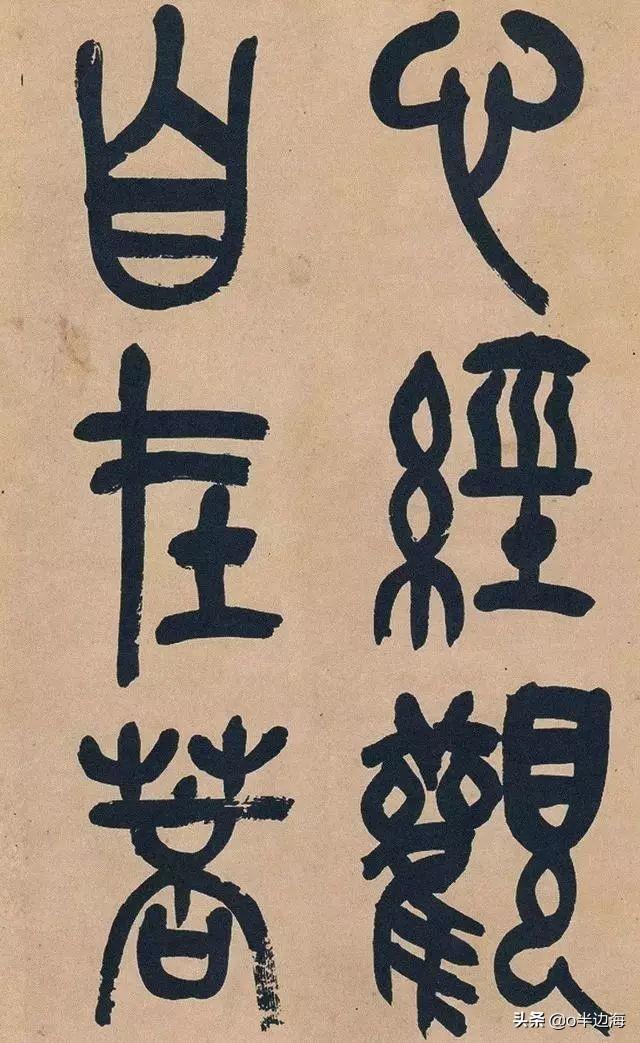 心經觀
自在菩
头条 @o半边海